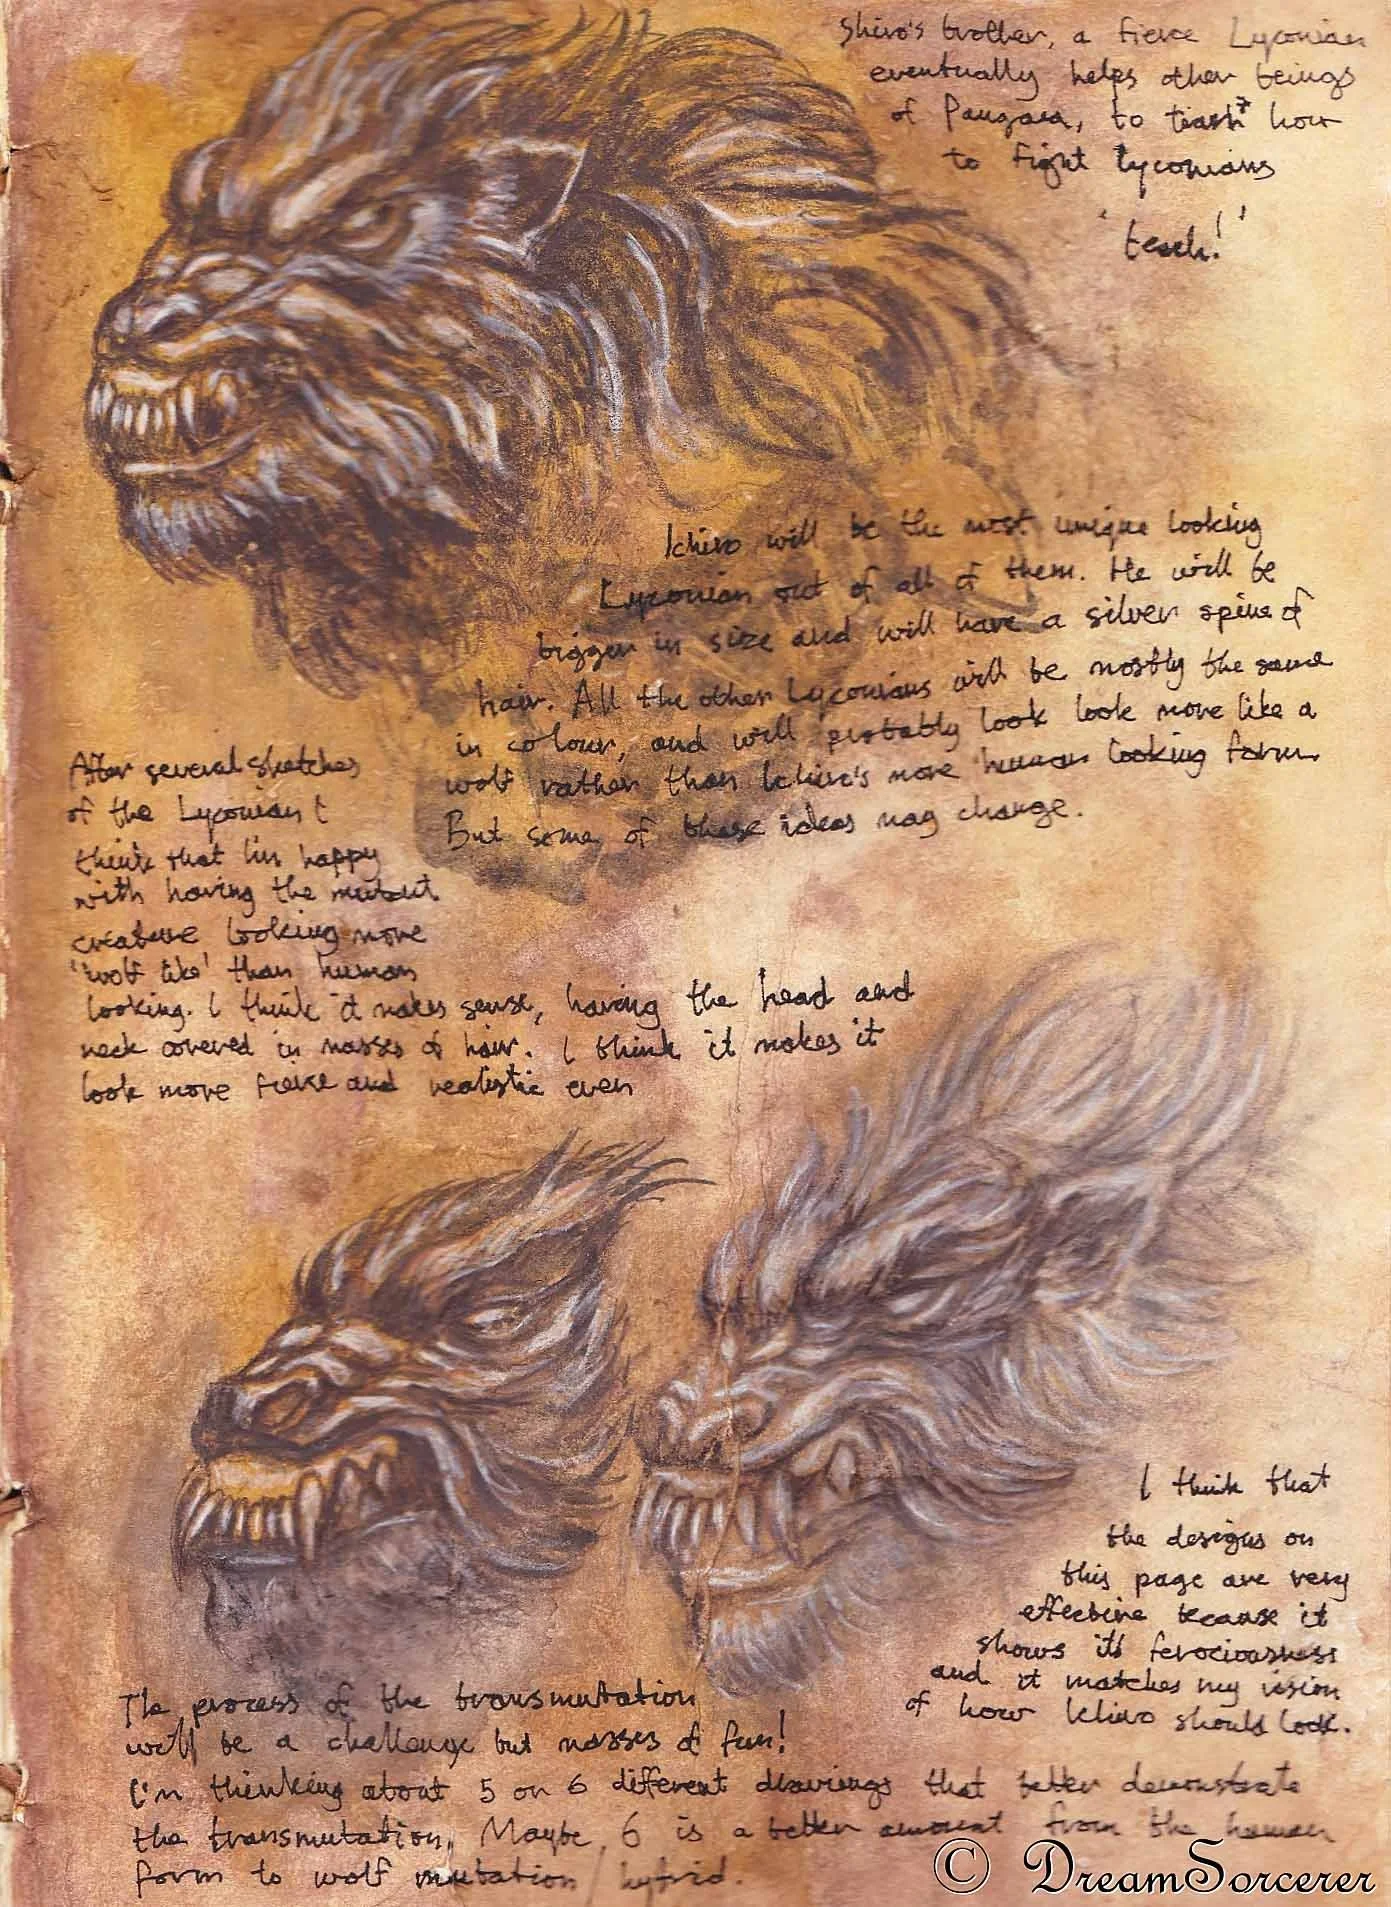 Shiro's brother, a fierce Lyconian
eventually helps other beings
of Pangaea, to how
to fight Lyconians
'teach!'
Ichiro will be the most unique looking
Lyconian out of all of them. He will be
bigger in size and will have a silver spine of
hair. All the other Lyconians will be mostly the same
in colour, and will probably look look more like a
wolf rather than Ichiro's more human looking form.
But some of these ideas may change.
After several sketches
of the Lyconian I
think that I'm happy
with having the mutant
creature looking more
'wolf like' than human
looking. I think it makes sense, having the head and
neck covered in masses of hair. I think it makes it
look more fierce and realistic even
I think that
the designs on
this page are very
effective because it
shows its ferociousness
and it matches my vision
of how Ichiro should look.
The process of the transmutation
will be a challenge but masses of fun!
I'm thinking about 5 or 6 different drawings that better demonstrate
the transmutation. Maybe 6 is a better amount from the human
form to wolf mutation / hybrid.
© DreamSorcerer